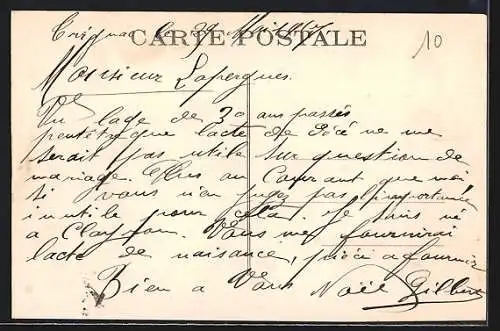 Trignac le 29
CARTE POSTALE
10
Monsieur Lapergues.
Vu lage de 30 ans passés
peutêtre que lacte de Décé ne me
serait pas utile sur question de
mariage. Plus au Courant que moi
si vous n'en jugez pas l'importance
inutile pour cela. Je suis né
a Clayson. Vous me fournirai
lacte de naisance, pièce a fournir
Bien a Vous Noël Gilbert